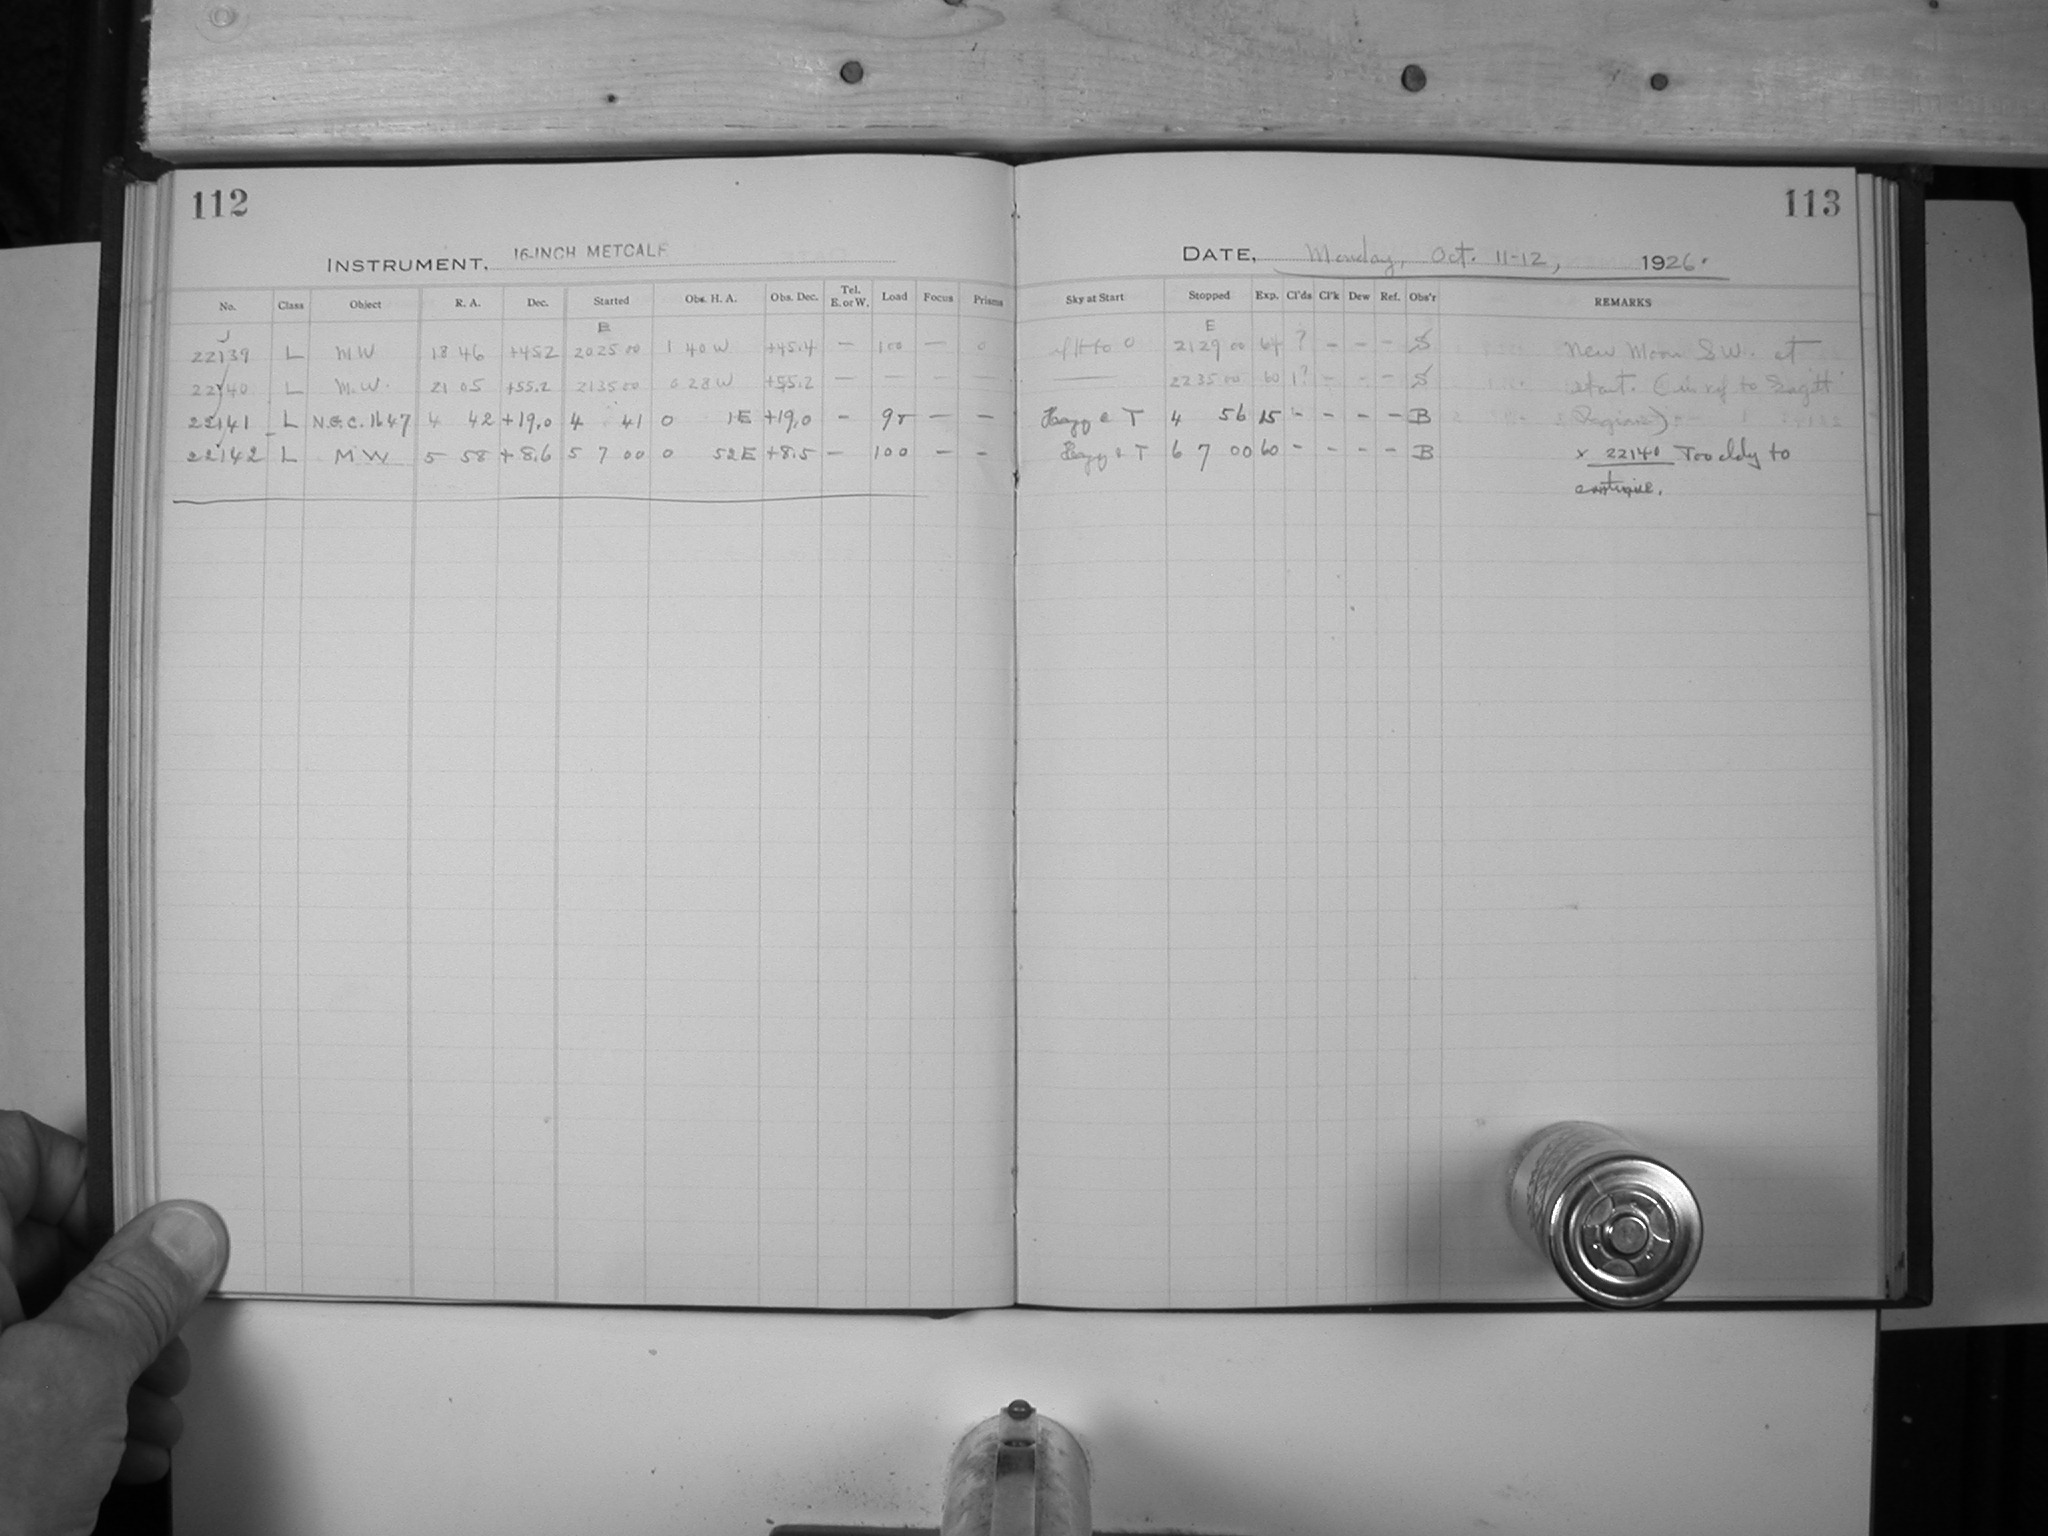 112
INSTRUMENT, 16-INCH METCALF
No. Class Object R. A. Dec. Started Obs. H. A. Obs. Dec. Tel. E. or W. Load Focus Prisms
J E
22139 L M.W 18 46 +45.2 20 25 00 1 40 W +45.4 — 100 — 0
22140 L M.W. 21 05 +55.2 21 35 00 0 28 W +55.2 — — — —
22141 L N.G.C. 1647 4 42 +19.0 4 41 0 1E +19.0 - 95 — —
22142 L M W 5 58 +8.6 5 7 00 0 52E +8.5 — 100 — —
113
DATE, Monday, Oct. 11-12, 1926.
Sky at Start Stopped Exp. Cl'ds Cl'k Dew Ref. Obs'r REMARKS
E
21 29 00 64 ? - - - S New Moon S.W. at
—— 22 35 00 60 1? - - - S start. to Sagitt
Hazy & T 4 56 15 - - - - B Regions)
Hazy & T 6 7 00 60 - - - - B x 22140 Too cldy to
continue.